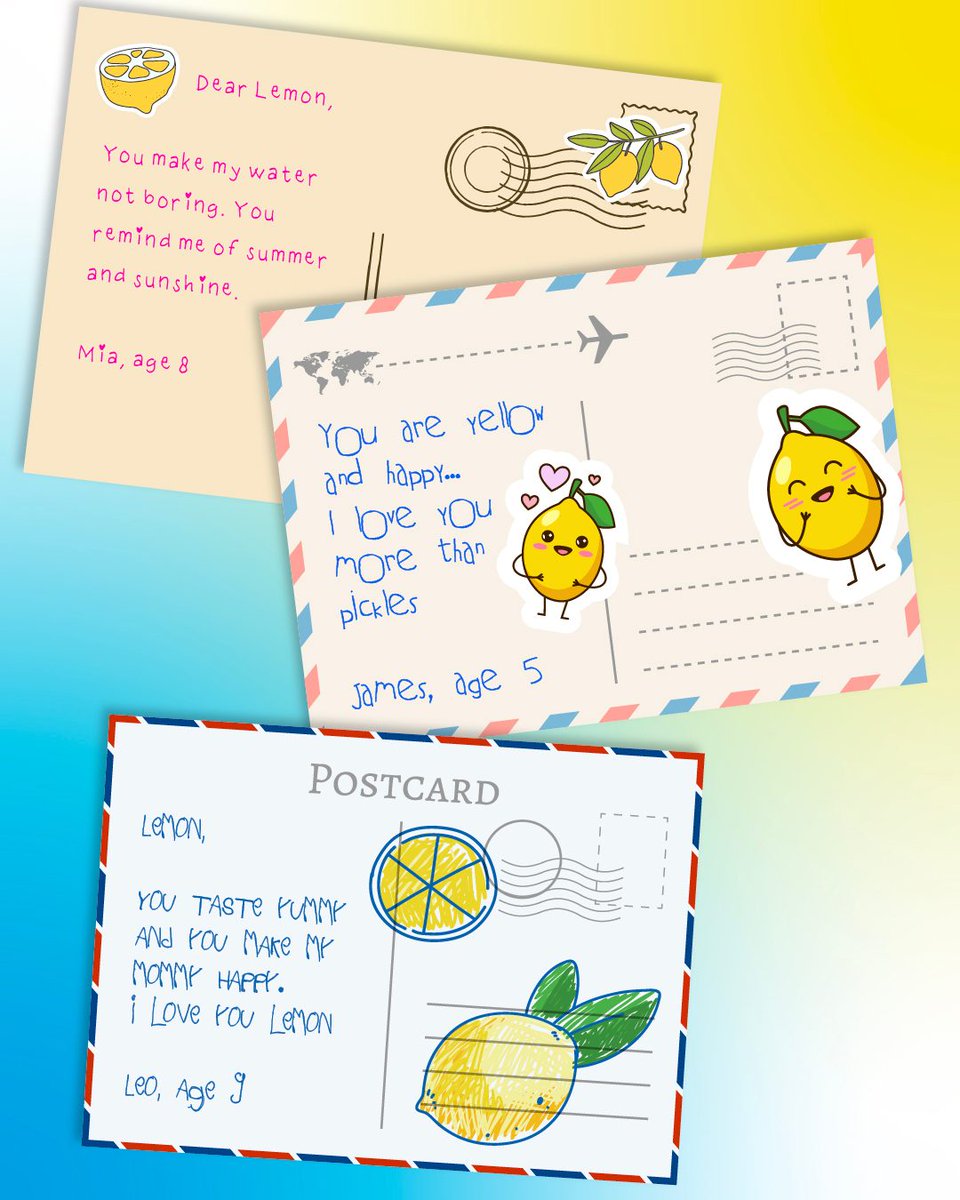 Dear Lemon,
You make my water
not boring. You
remind me of summer
and sunshine.
Mia, age 8
You are yellow
and happy...
I love you
more than
pickles
James, age 5
POSTCARD
LEMON,
YOU TASTE YUMMY
AND YOU MAKE MY
MOMMY HAPPY.
i LOVE YOU LEMON
LEO, AGE 9